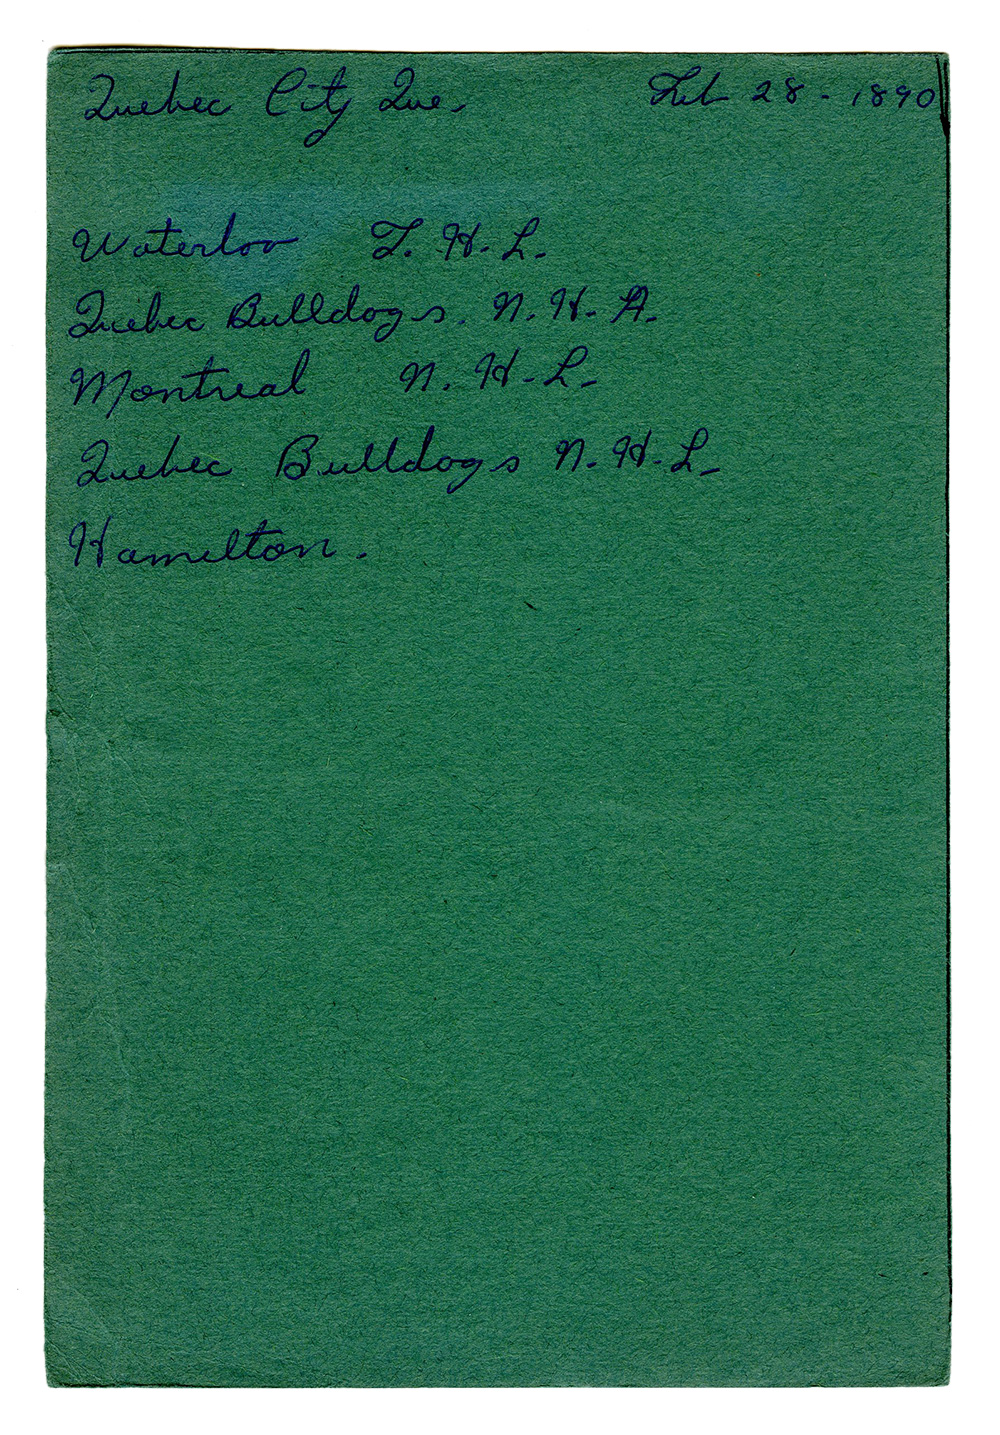 Quebec City Que. Feb 28 - 1890
Waterloo T. H. L.
Quebec Bulldogs. N. H. A.
Montreal N. H. L.
Quebec Bulldogs N. H. L.
Hamilton.